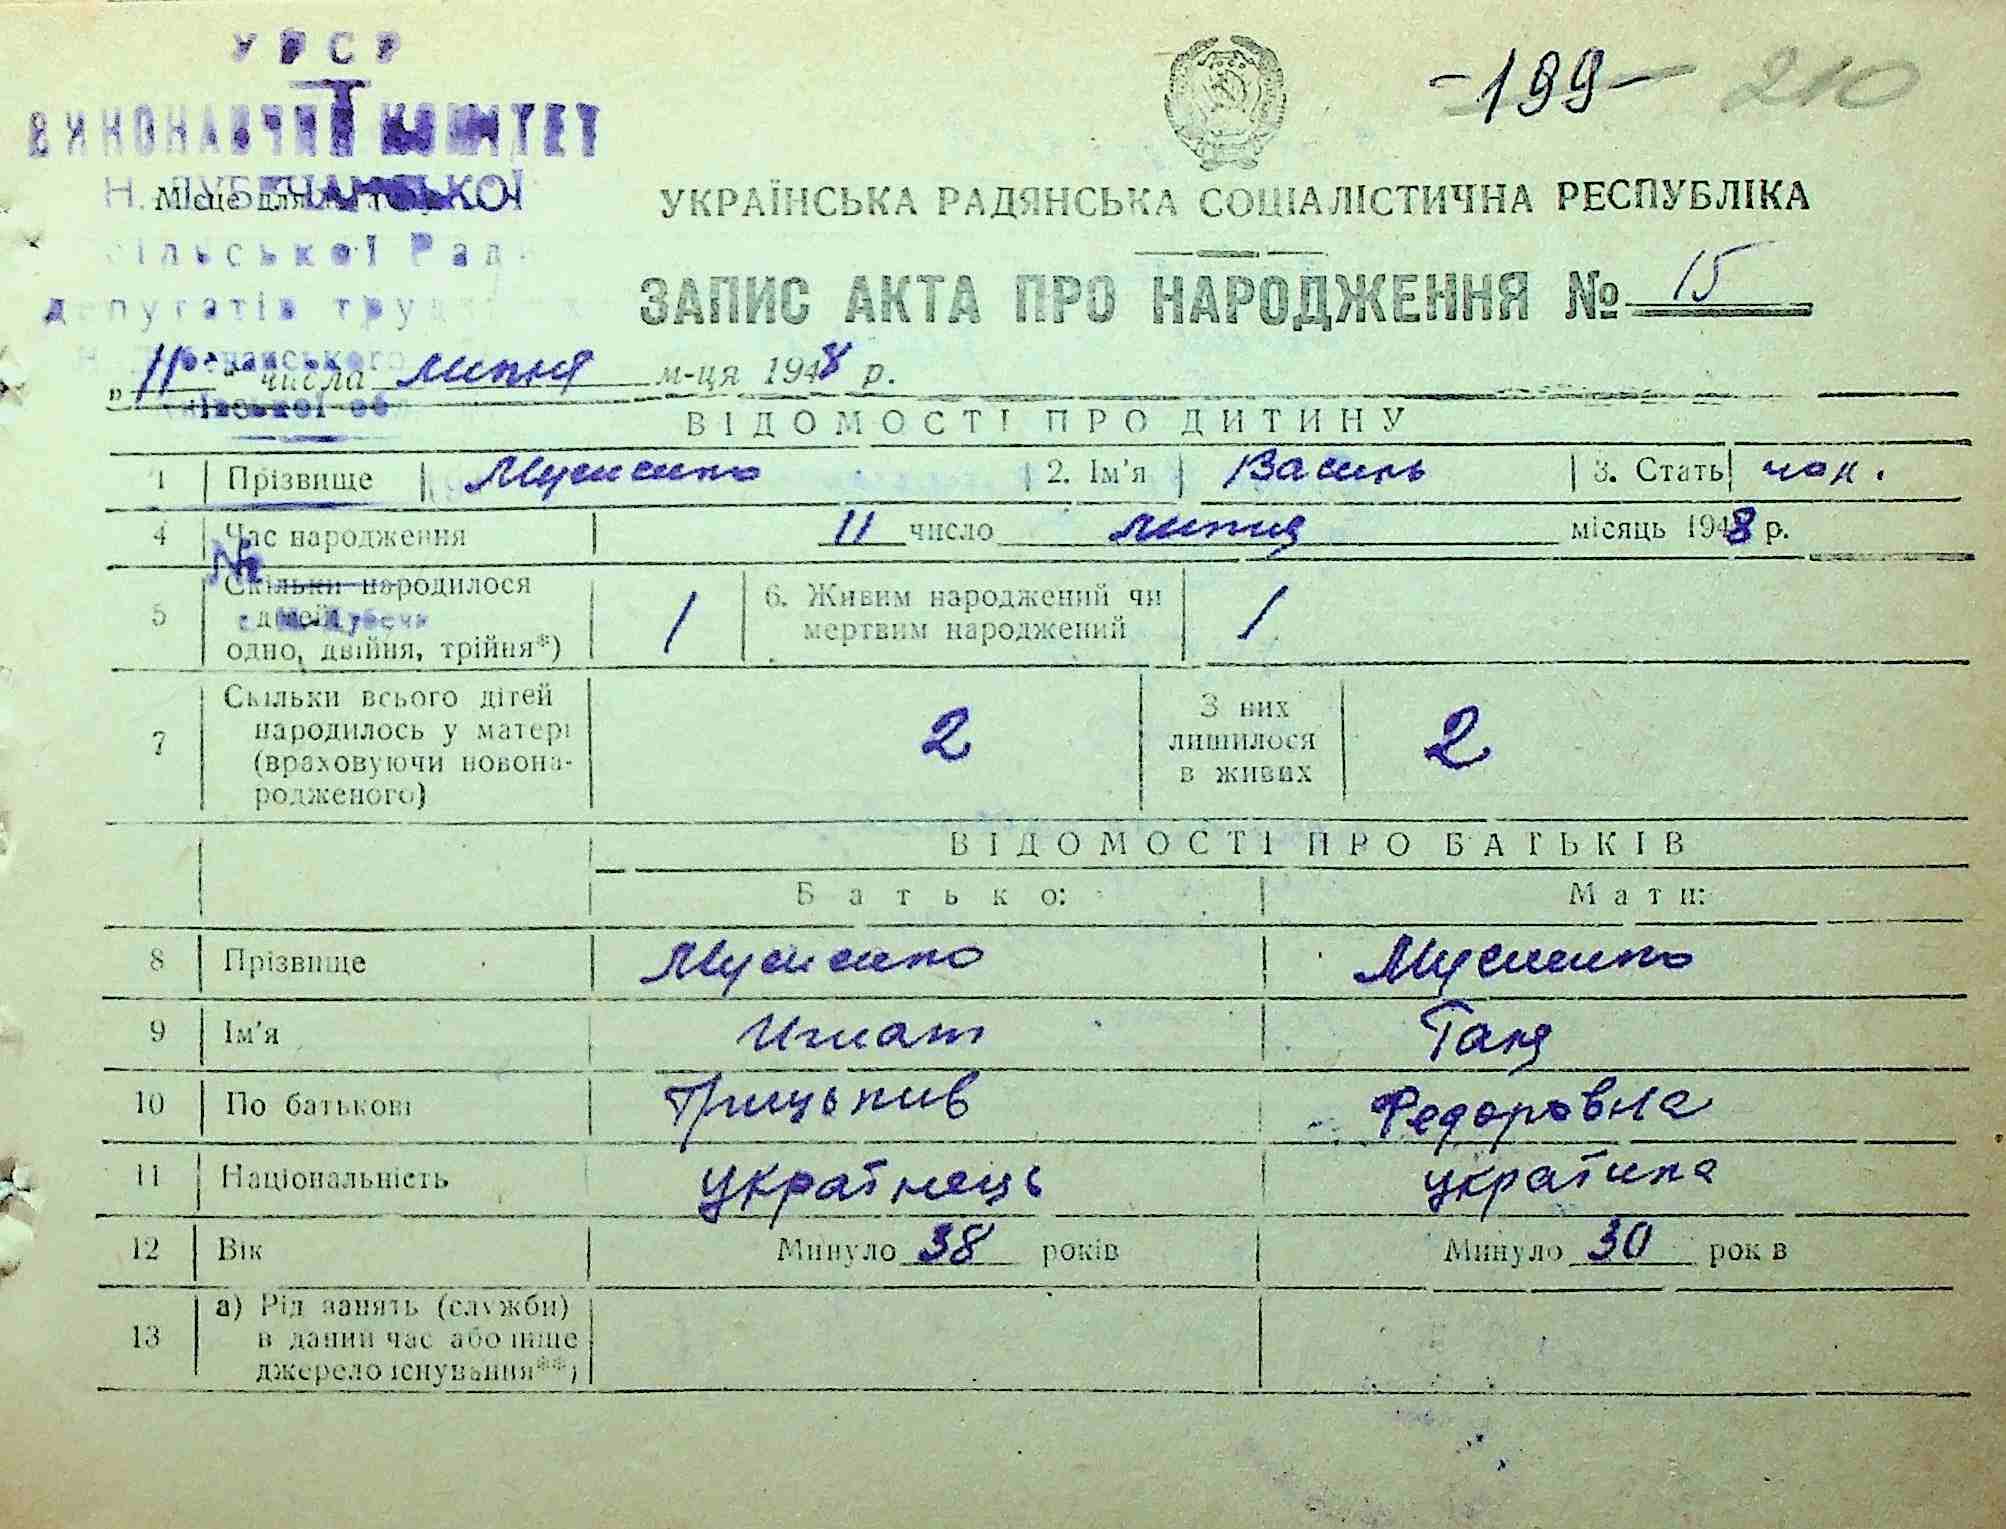 УРСР
ВИКОНАВЧИЙ КОМІТЕТ
Місце для
сільської Рад
депутатів труд
-199- 210
УКРАЇНСЬКА РАДЯНСЬКА СОЦІАЛІСТИЧНА РЕСПУБЛІКА
ЗАПИС АКТА ПРО НАРОДЖЕННЯ № 15
„11" числа липня м-ця 1948 р.
ВІДОМОСТІ ПРО ДИТИНУ
1 Прізвище Мусиенко 2. Ім'я Василь 3. Стать чол.
4 Час народження 11 число липня місяць 1948 р.
№
5 Скільки народилося
дітей
одно, двійня, трійня*) 1 6. Живим народжений чи
мертвим народжений 1
7 Скільки всього дітей
народилось у матері
(враховуючи новона-
родженого) 2 З них
лишилося
в живих 2
ВІДОМОСТІ ПРО БАТЬКІВ
Батько: Мати:
8 Прізвище Мусиенко Мусиенко
9 Ім'я Игнат Ганя
10 По батькові Грицькив Федоровна
11 Національність українець українка
12 Вік Минуло 38 років Минуло 30 рок в
13 а) Рід занять (служби)
в даний час або інше
джерело існування**)